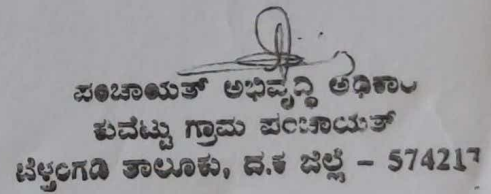 ಪಂಚಾಯತ್ ಅಭಿವೃದ್ಧಿ ಅಧಿಕಾರಿ
ಕುವೆಟ್ಟು ಗ್ರಾಮ ಪಂಚಾಯತ್
ಬೆಳ್ತಂಗಡಿ ತಾಲೂಕು, ದ.ಕ ಜಿಲ್ಲೆ - 574217